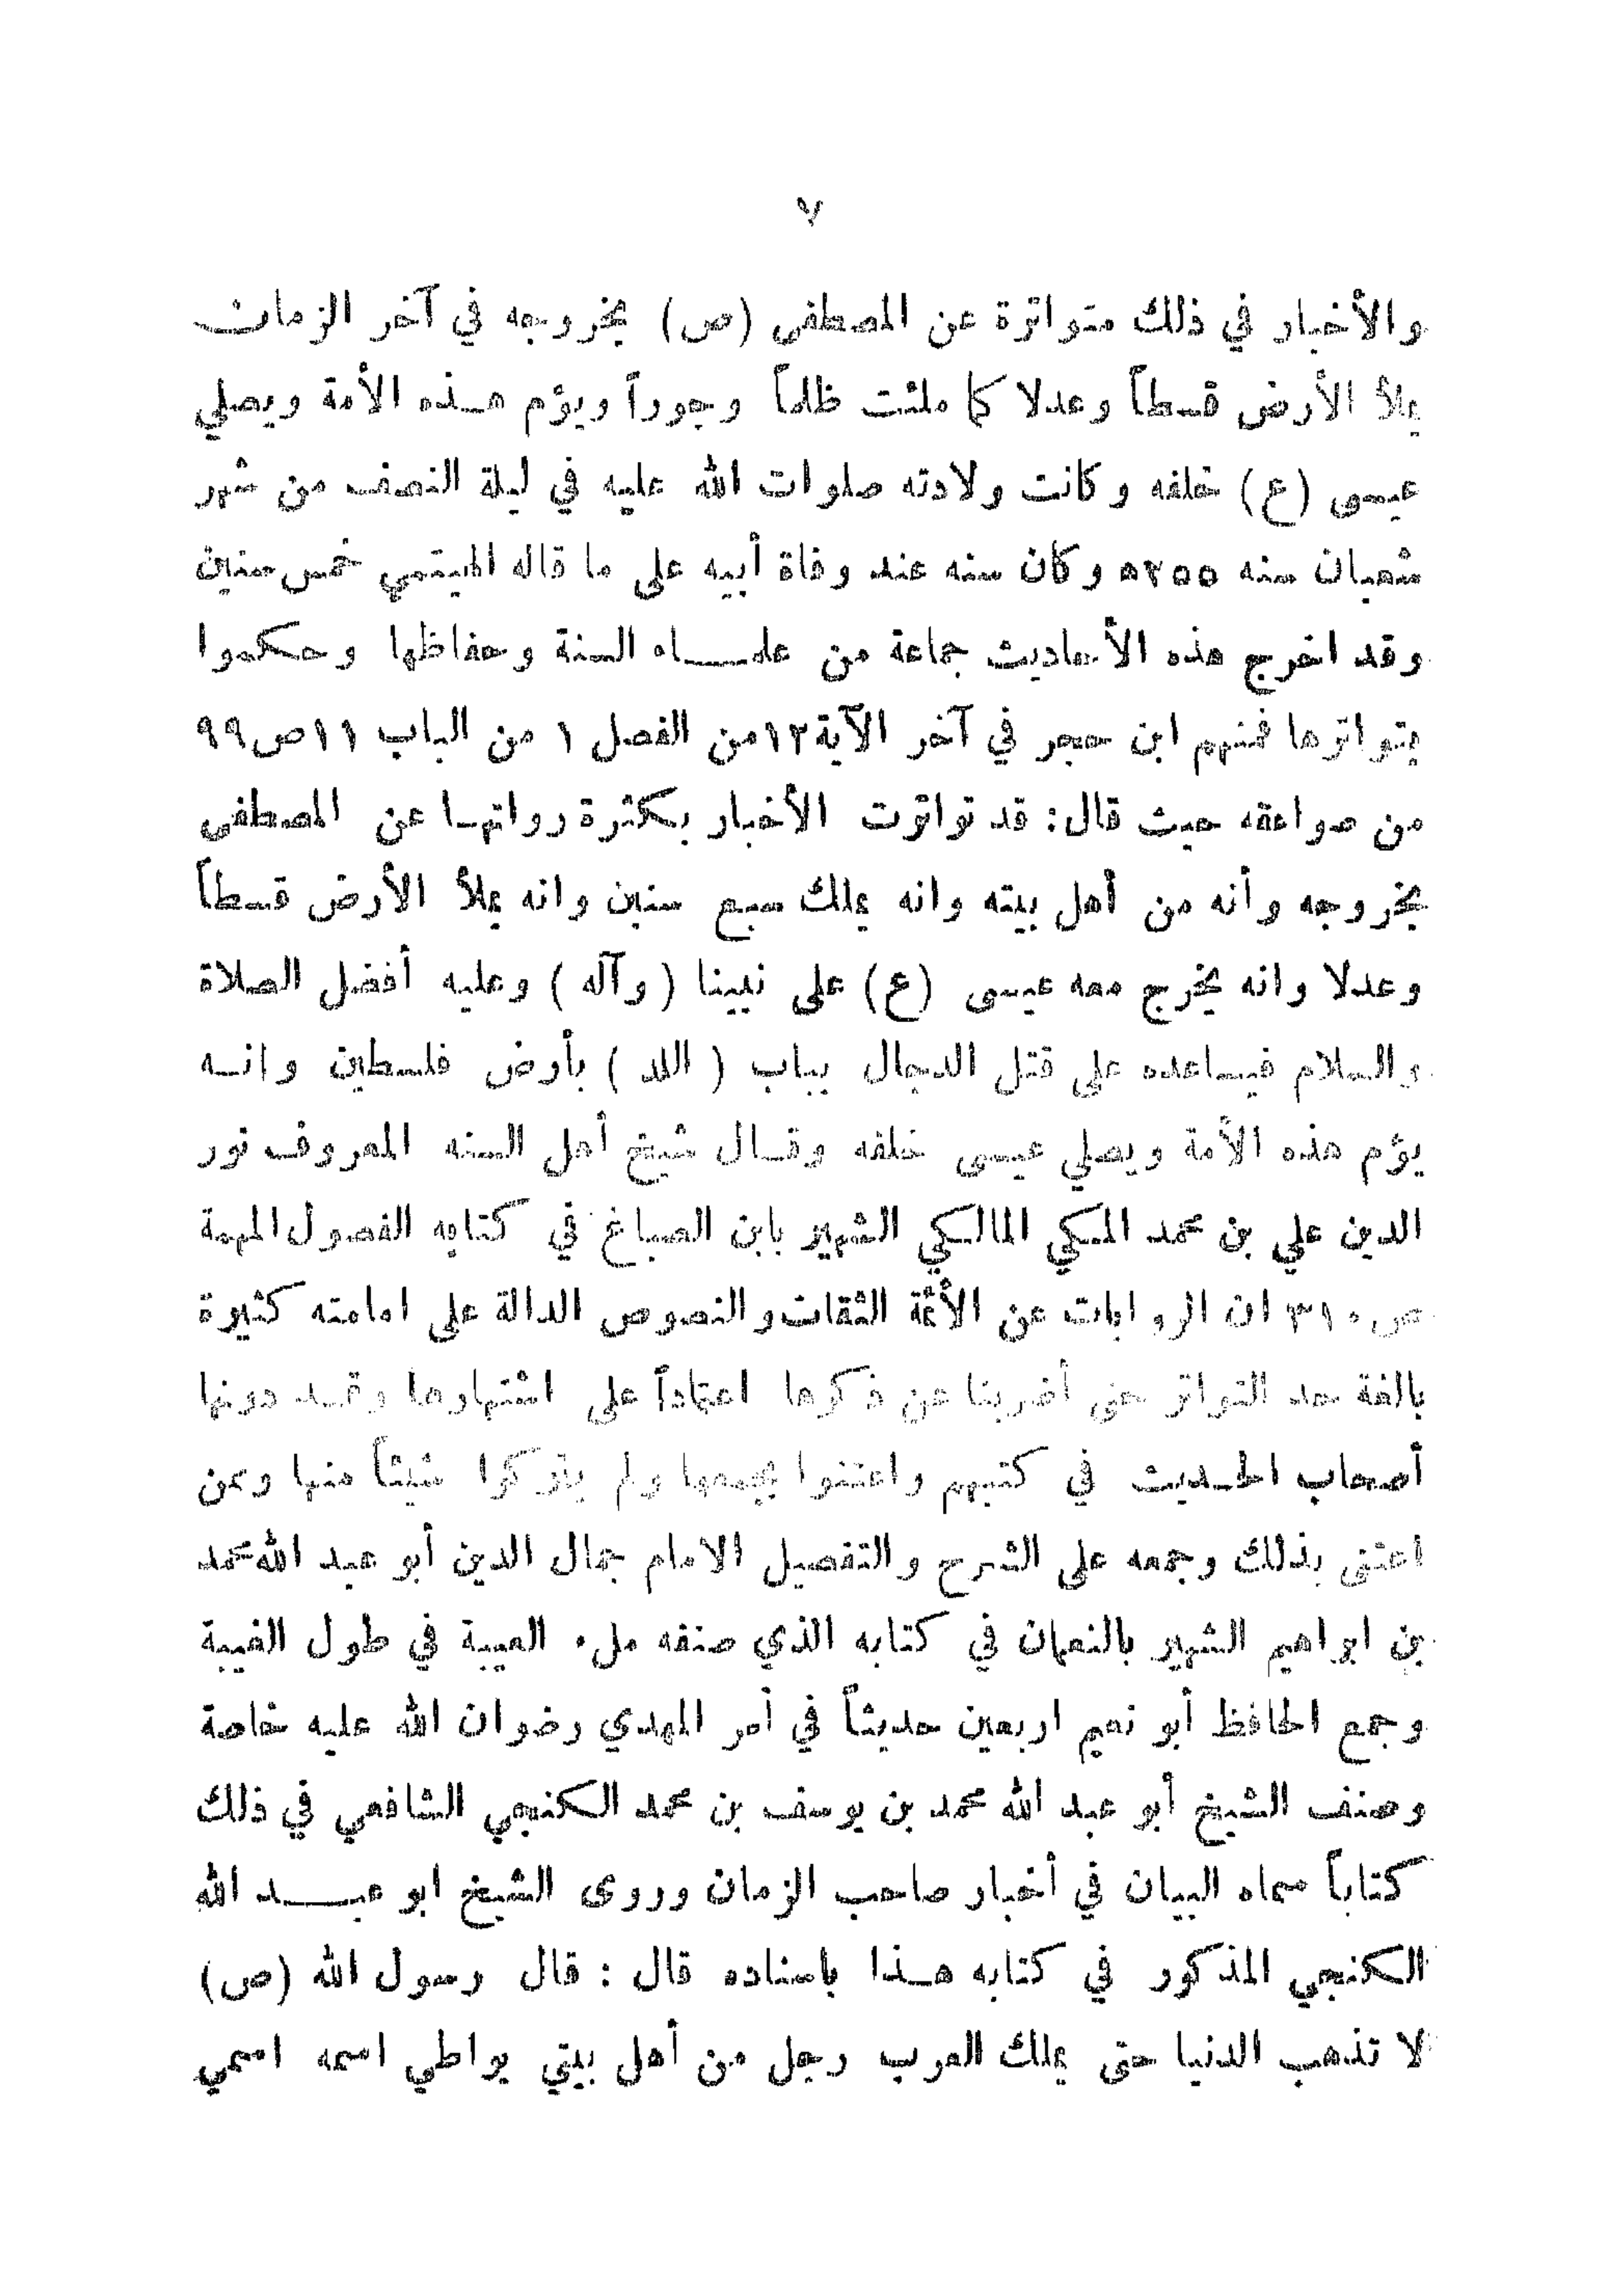 ٧
والأخبار في ذلك متواترة عن المصطفى (ص) بخروجه في آخر الزمان
يملأ الأرض قسطاً وعدلا كما ملئت ظلماً وجوراً ويؤم هذه الأمة ويصلي
عيسى (ع) خلفه وكانت ولادته صلوات الله عليه في ليلة النصف من شهر
شعبان سنه ٢٥٥ه وكان سنه عند وفاة أبيه على ما قاله الهيتمي خمس سنين
وقد اخرج هذه الأحاديث جماعة من علماء السنة وحفاظها وحكموا
بتواترها فمنهم ابن حجر في آخر الآية ١٢ من الفصل ١ من الباب ١١ ص ٩٩
من صواعقه حيث قال: قد تواترت الأخبار بكثرة رواتها عن المصطفى
بخروجه وأنه من أهل بيته وانه يملك سبع سنين وانه يملأ الأرض قسطاً
وعدلا وانه يخرج معه عيسى (ع) على نبينا (وآله) وعليه أفضل الصلاة
والسلام فيساعده على قتل الدجال بباب (اللد) بأرض فلسطين وانه
يؤم هذه الأمة ويصلي عيسى خلفه وقال شيخ أهل السنه المعروف نور
الدين علي بن محمد المكي المالكي الشهير بابن الصباغ في كتابه الفصول المهمة
ص ٣١٠ ان الروايات عن الأئمة الثقات والنصوص الدالة على امامته كثيرة
بالغة حد التواتر حتى أضربنا عن ذكرها اعتماداً على اشتهارها وقد دونها
أصحاب الحديث في كتبهم واعتنوا بجمعها ولم يتركوا شيئاً منها وممن
اعتنى بذلك وجمعه على الشرح والتفصيل الامام جمال الدين أبو عبد الله محمد
بن ابراهيم الشهير بالنعمان في كتابه الذي صنفه ملء العيبة في طول الغيبة
وجمع الحافظ أبو نعيم اربعين حديثاً في أمر المهدي رضوان الله عليه خاصة
وصنف الشيخ أبو عبد الله محمد بن يوسف بن محمد الكنجي الشافعي في ذلك
كتاباً سماه البيان في أخبار صاحب الزمان وروى الشيخ ابو عبد الله
الكنجي المذكور في كتابه هذا باسناده قال : قال رسول الله (ص)
لا تذهب الدنيا حتى يملك العرب رجل من أهل بيتي يواطي اسمه اسمي